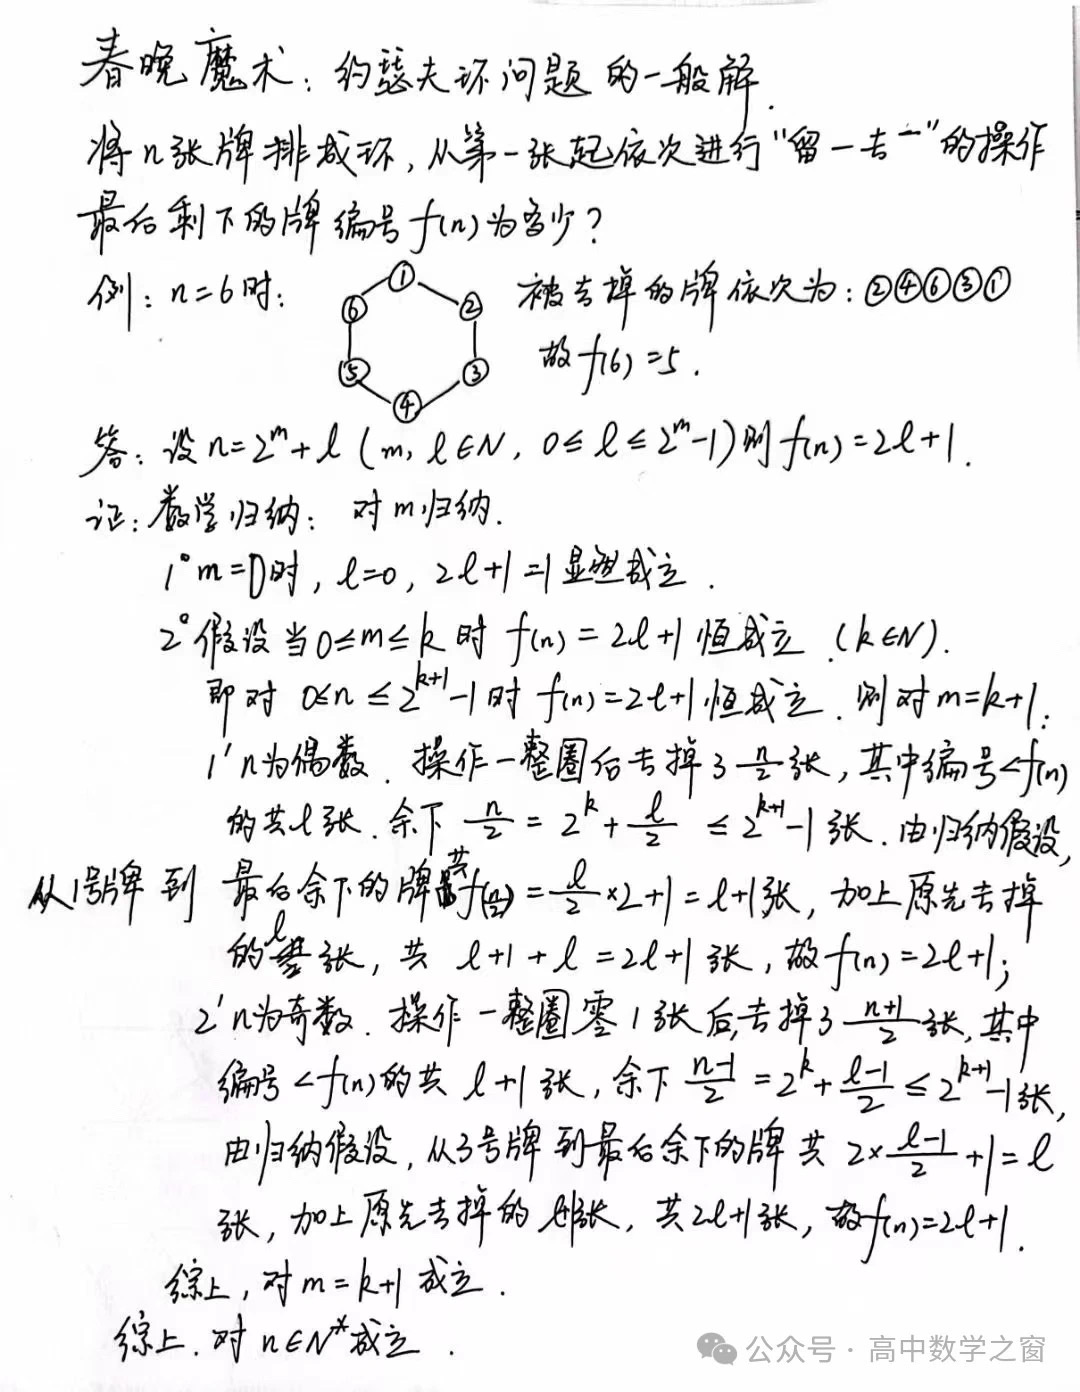 春晚魔术：约瑟夫环问题的一般解.
将n张牌排成环，从第一张起依次进行"留一去一"的操作
最后剩下的牌编号f(n)为多少？
例：n=6时：
① ② ③ ④ ⑤ ⑥
被去掉的牌依次为：②④⑥③①
故f(6)=5.
答：设n=2^m+l (m,l∈N, 0≤l≤2^m-1)则f(n)=2l+1.
证：数学归纳：对m归纳.
1° m=0时，l=0，2l+1=1显然成立.
2° 假设当0≤m≤k时 f(n)=2l+1恒成立.(k∈N).
即对 0≤n≤2^{k+1}-1时 f(n)=2l+1恒成立.则对m=k+1:
1' n为偶数.操作一整圈后去掉了n/2张，其中编号<f(n)
的共l张.余下 n/2=2^k+l/2 ≤2^{k+1}-1张.由归纳假设，
从1号牌到 最后余下的牌共f(n/2)=l/2×2+1=l+1张，加上原先去掉
的l张，共 l+1+l=2l+1张，故f(n)=2l+1；
2' n为奇数.操作一整圈零1张后，去掉了(n+1)/2张，其中
编号<f(n)的共 l+1张，余下 (n-1)/2=2^k+(l-1)/2≤2^{k+1}-1张，
由归纳假设，从3号牌到最后余下的牌共 2×(l-1)/2+1=l
张，加上原先去掉的l+1张，共2l+1张，故f(n)=2l+1.
综上，对m=k+1成立.
综上.对n∈N*成立.
公众号·高中数学之窗